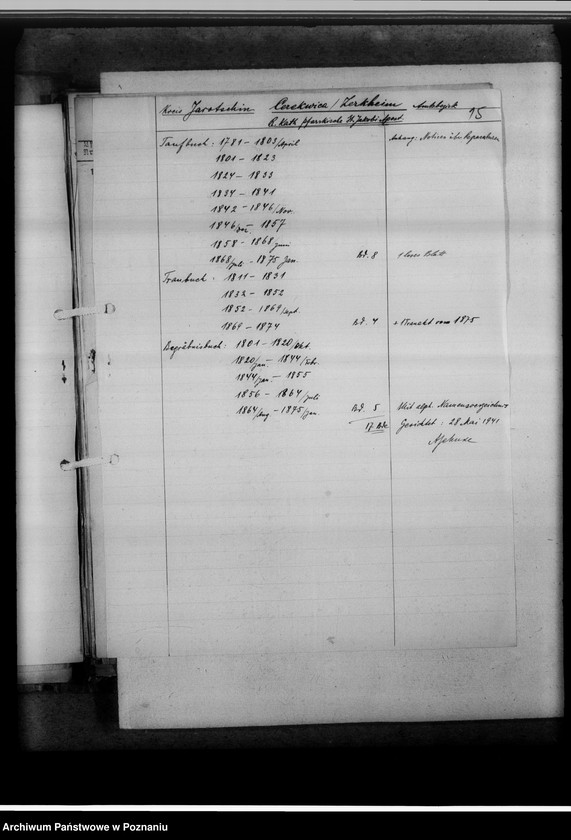 Kreis Jarotschin Cerekwica / Zerkheim Amtsbezirk 95
R. Kath. Pfarrkirche St. Jakobi Apost.
Taufbuch: 1781 – 1803/April Anhang: Notizen über Reparaturen
1801 – 1823
1824 – 1833
1834 – 1841
1842 – 1846/Nov.
1846/Dez. – 1857
1858 – 1868 Juni
1868/Juli – 1875 Jan. Bd. 8 1 loses Blatt
Traubuch: 1811 – 1831
1832 – 1852
1852 – 1869/Sept.
1869 – 1874 Bd. 4 1875
Begräbnisbuch: 1801 – 1820/Okt.
1820/Jan. – 1844/Febr.
1844/Jan. – 1855
1856 – 1864/Juli
1864/Aug. – 1875/Jan. Bd. 5 Mit alph. Namensverzeichnis
17 Bde. Gesichtet: 28 Mai 1941
Archiwum Państwowe w Poznaniu